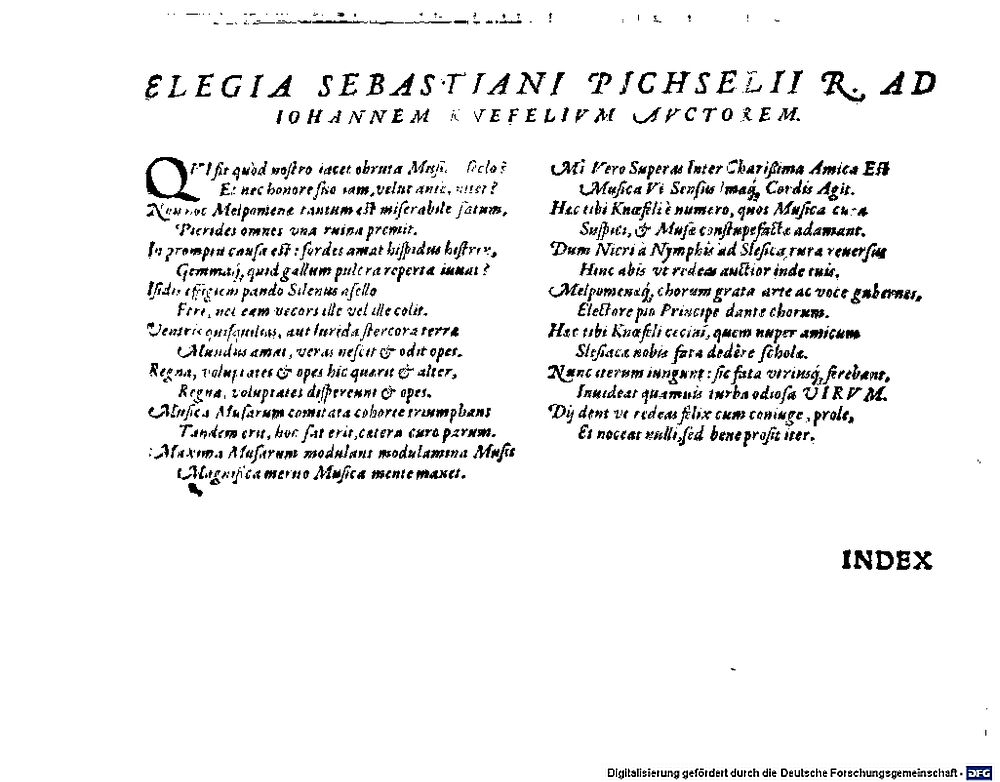 ELEGIA SEBASTIANI PICHSELII R. AD
IOHANNEM KNEFELIVM AVCTOREM.
QVI fit quòd nostro iacet obruta Musica seclo?
Et nec honore suo iam, velut antè, nitet?
Non hoc Melpomene tantum est miserabile fatum,
Pierides omnes vna ruina premit.
In promptu causa est: sordes amat hispidus
Gemmaq́, quid gallum pulcra reperta iuuat?
Isidis effigiem pando Silenus asello
Fert, nec eam vecors ille vel ille colit.
Ventris aut lurida stercora terræ
Mundus amat, veras nescit & odit opes.
Regna, voluptates & opes hic quærit & alter,
Regna, voluptates dispereunt & opes.
Musica Musarum comitata cohorte triumphans
Tandem erit, hoc sat erit, cætera curo parum.
Maxima Musarum modulans modulamina Musis
Magnifica meritò Musica mente manet.
Mi Vero Superas Inter Charißima Amica Est
Musica Vi Sensus Imaq́ Cordis Agit.
Hæc tibi Knœfeli è numero, quos Musica cura
Suspicis, & Musæ constupefactæ adamant.
Dum Nicri à Nymphis ad Slesica rura reuersus
Hinc abis vt redeas auctior inde tuis,
Melpomenaq́, chorum grata arte ac voce gubernes,
Electore pio Principe dante chorum.
Hæc tibi Knœfeli cecini, quem nuper amicum
Slesiacæ nobis fata dedère scholæ.
Nunc iterum iungunt: sic fata vtriusq́, ferebant,
Inuideat quamuis turba odiosa VIRVM.
Dij dent vt redeas felix cum coniuge, prole,
Et noceat nulli, sed bene prosit iter.
INDEX
Digitalisierung gefördert durch die Deutsche Forschungsgemeinschaft - DFG